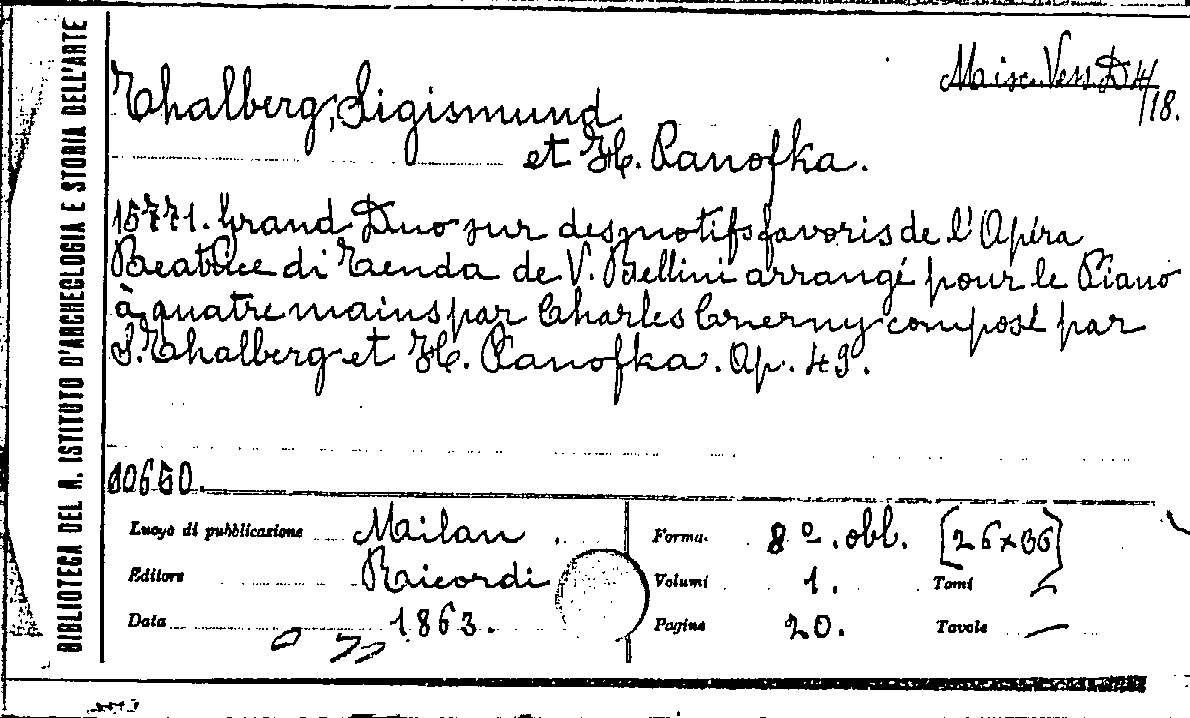 BIBLIOTECA DEL R. ISTITUTO D'ARCHEOLOGIA E STORIA DELL'ARTE
Misc. Vess. D 4/18.
Thalberg, Sigismund
et H. Panofka.
15771. Grand Duo sur des motifs favoris de l'Opéra
Beatrice di Tenda de V. Bellini arrangé pour le Piano
à quatre mains par Charles Czerny composé par
S. Thalberg et H. Panofka. Op. 49.
10650.
Luogo di pubblicazione Milan
Editore Ricordi
Data 1863.
Forma 8º. obl. [26×36]
Volumi 1. Tomi –
Pagine 20. Tavole –